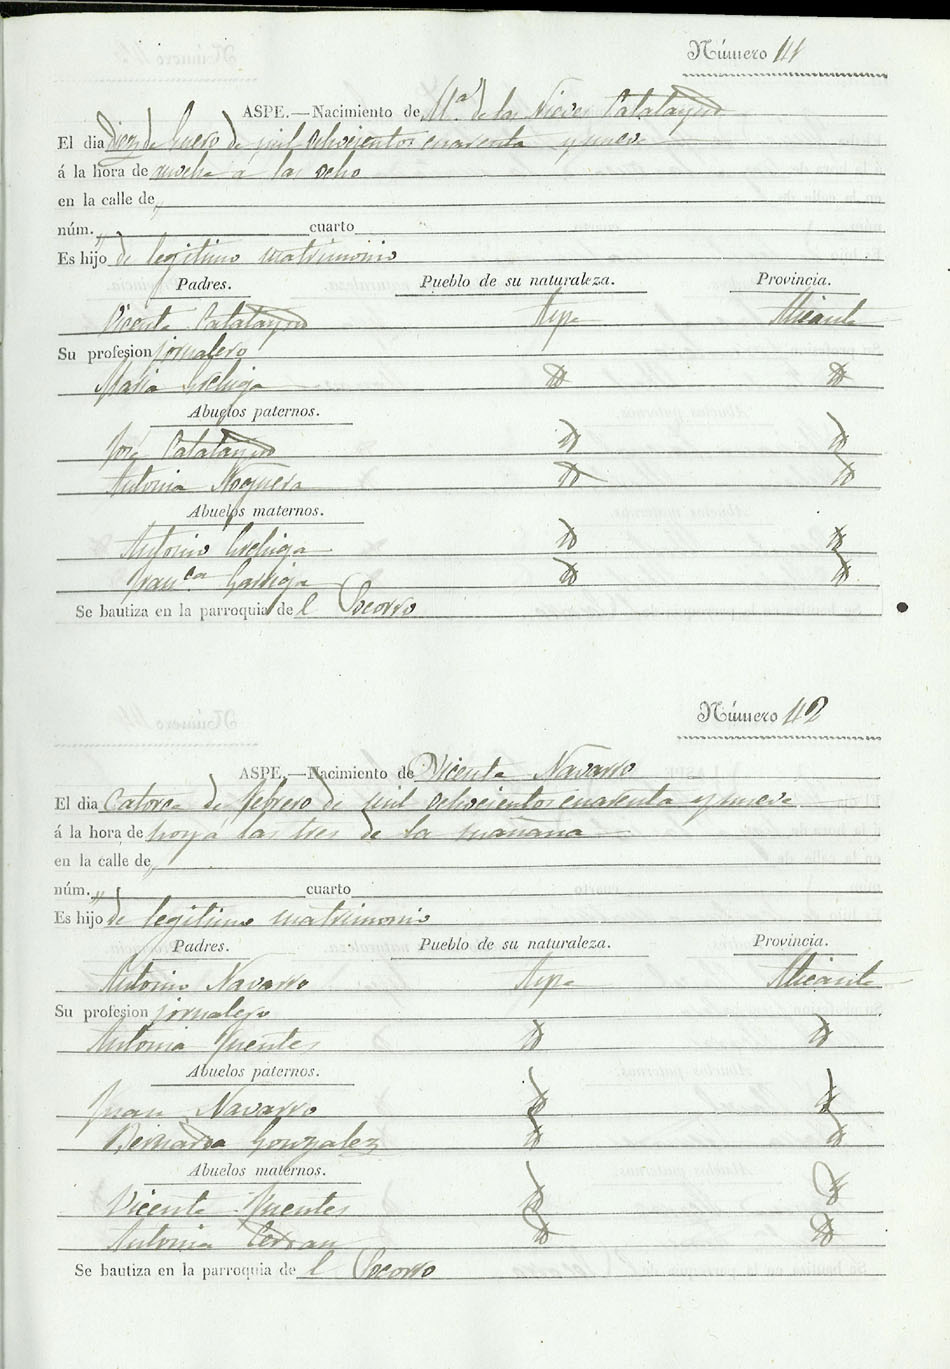 Número 41
ASPE.—Nacimiento de Mª de las Nieves Calatayud
El dia Diez de Enero de mil ochocientos cuarenta y nueve
á la hora de noche a las ocho
en la calle de „
núm. „ cuarto
Es hijo de legitimo matrimonio
Padres. Pueblo de su naturaleza. Provincia.
Vicente Calatayud Aspe Alicante
Su profesion jornalero
Maria
Abuelos paternos.
José Calatayud
Antonia Noguera
Abuelos maternos.
Antonio
Franca
Se bautiza en la parroquia de l Socorro
Número 42
ASPE.—Nacimiento de Vicente Navarro
El dia Catorce de febrero de mil ochocientos cuarenta y nueve
á la hora de hoy a las tres de la mañana
en la calle de „
núm. „ cuarto
Es hijo de legitimo matrimonio
Padres. Pueblo de su naturaleza. Provincia.
Antonio Navarro Aspe Alicante
Su profesion jornalero
Antonia Fuentes
Abuelos paternos.
Juan Navarro
Bernarda Gonzalez
Abuelos maternos.
Vicente Fuentes
Antonia
Se bautiza en la parroquia de l Socorro